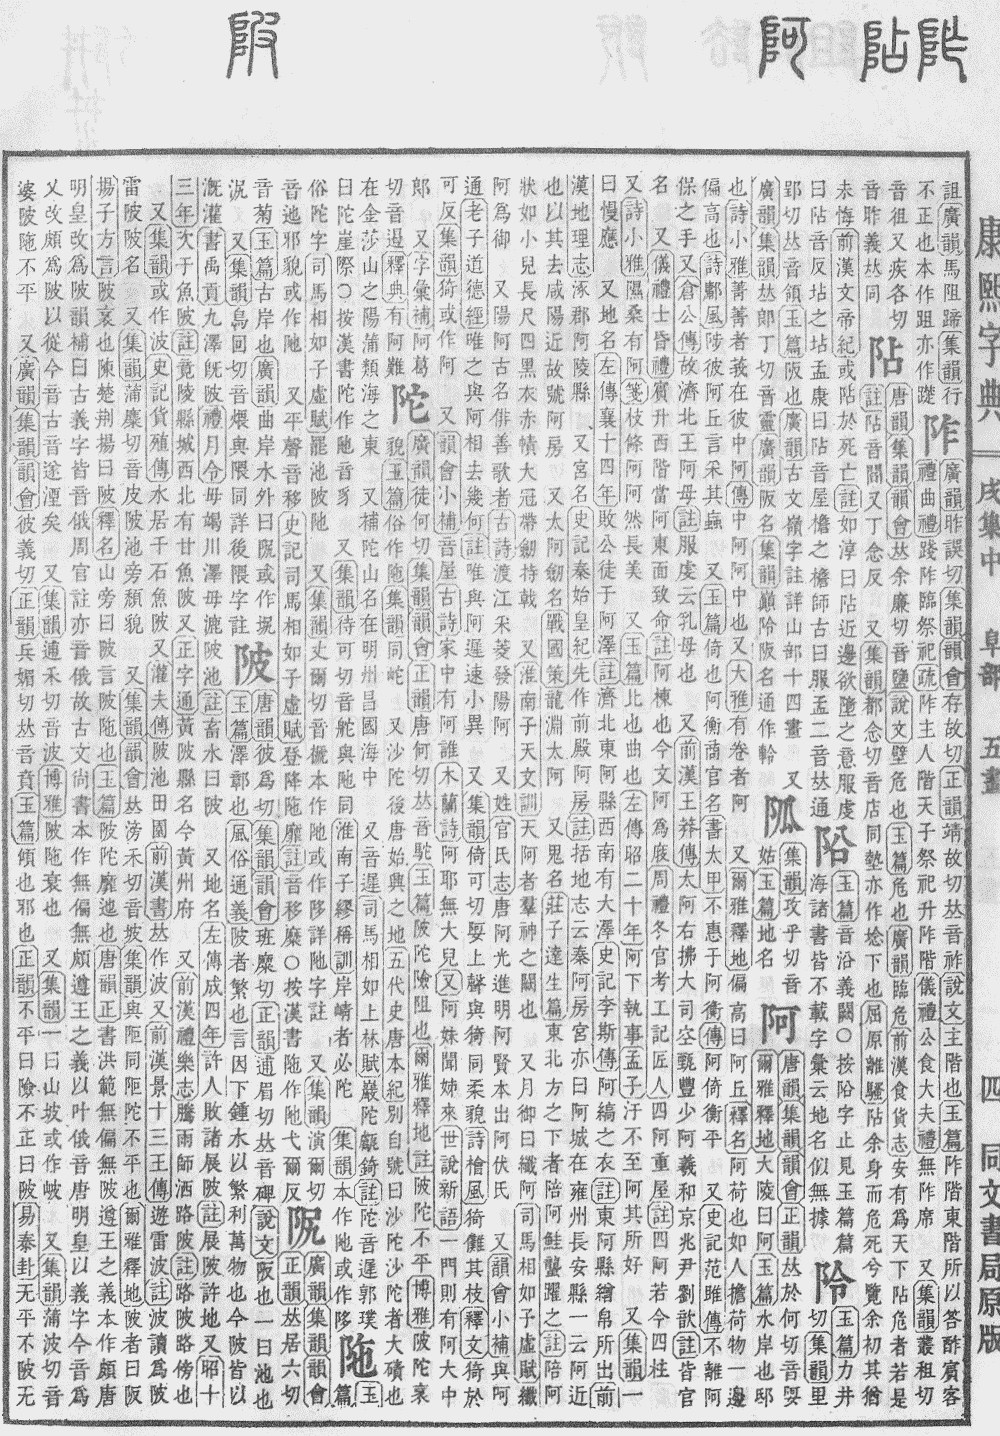 康熙字典 戌集中 阜部 五畫 四 同文書局原版
阼
阽
阿
陂
詛廣韻馬阻蹄集韻行
不正也本作跙亦作蹉
阼
廣韻昨誤切集韻韻會存故切正韻靖故切𠀤音祚說文主階也玉篇阼階東階所以答酢賓客
禮曲禮踐阼臨祭祀疏阼主人階天子祭祀升阼階儀禮公食大夫禮無阼席 又集韻叢租切
音徂又疾各切
音昨義𠀤同
阽
唐韻集韻韻會𠀤余廉切音鹽說文壁危也玉篇危也廣韻臨危前漢食貨志安有為天下阽危者若是
註阽音閻又丁念反 又集韻都念切音店同墊亦作埝下也屈原離騷阽余身而危死兮覽余初其猶
未悔前漢文帝紀或阽於死亡註如淳曰阽近邊欲墮之意服虔
曰阽音反坫之坫孟康曰阽音屋檐之檐師古曰服孟二音𠀤通
𨸷
玉篇音沿義闕○按𨸷字止見玉篇篇
海諸書皆不載字彙云地名似無據
阾
玉篇力井
切集韻里
郢切𠀤音領玉篇阪也廣韻古文嶺字註詳山部十四畫 又
廣韻集韻𠀤郎丁切音靈廣韻阪名集韻巔阾阪名通作軨
㧓
集韻攻乎切音
姑玉篇地名
阿
唐韻集韻韻會正韻𠀤於何切音妸
爾雅釋地大陵曰阿玉篇水岸也邸
也詩小雅菁菁者莪在彼中阿傳中阿阿中也又大雅有卷者阿 又爾雅釋地偏高曰阿丘釋名阿荷也如人擔荷物一邊
偏高也詩鄘風陟彼阿丘言采其蝱 又玉篇倚也阿衡商官名書太甲不惠于阿衡傳阿倚衡平 又史記范雎傳不離阿
保之手又倉公傳故濟北王阿母註服虔云乳母也 又前漢王莽傳太阿右拂大司空甄豐少阿羲和京兆尹劉歆註皆官
名 又儀禮士昏禮賓升西階當阿東面致命註阿棟也今文阿為庪周禮冬官考工記匠人四阿重屋註四阿若今四柱
又詩小雅隰桑有阿箋枝條阿阿然長美 又玉篇北也曲也左傳昭二十年阿下執事孟子汙不至阿其所好 又集韻一
曰慢應 又地名左傳襄十四年敗公徒于阿澤註濟北東阿縣西南有大澤史記李斯傳阿縞之衣註東阿縣繒帛所出前
漢地理志涿郡阿陵縣 又宮名史記秦始皇紀先作前殿阿房註括地志云秦阿房宮亦曰阿城在雍州長安縣一云阿近
也以其去咸陽近故號阿房 又太阿劒名戰國策龍淵太阿 又鬼名莊子達生篇東北方之下者陪阿鮭蠪躍之註陪阿
狀如小兒長尺四黑衣赤幘大冠帶劒持戟 又淮南子天文訓天阿者羣神之闕也 又月御曰纖阿司馬相如子虛賦纖
阿為御 又陽阿古名俳善歌者古詩渡江采菱發陽阿 又姓官氏志唐阿光進明阿賢本出阿伏氏 又韻會小補與呵
通老子道德經唯之與阿相去幾何註唯與阿遲速小異 又集韻倚可切妸上聲與猗同柔貌詩檜風猗儺其枝釋文猗於
可反集韻猗或作阿 又韻會小補音屋古詩家中有阿誰木蘭詩阿耶無大兒又阿妹聞姊來世說新語一門則有阿大中
郎 又字彙補阿葛
切音遏釋典有阿難
陀
廣韻徒何切集韻韻會正韻唐何切𠀤音駝玉篇陂陀險阻也爾雅釋地註陂陀不平博雅陂陀衺
貌玉篇俗作陁集韻同岮 又沙陀後唐始興之地五代史唐本紀別自號曰沙陀沙陀者大磧也
在金莎山之陽蒲類海之東 又補陀山名在明州昌國海中 又音遲司馬相如上林賦巖陀甗錡註陀音遲郭璞
曰陀崖際○按漢書陀作阤音豸 又集韻待可切音舵與阤同淮南子繆稱訓岸崝者必陀 集韻本作阤或作陊
陁
玉
篇
俗陀字司馬相如子虛賦罷池陂陁 又集韻丈爾切音搋本作阤或作陊詳阤字註 又集韻演爾切
音迤邪貌或作阤 又平聲音移史記司馬相如子虛賦登降陁靡註音移糜○按漢書陁作阤弋爾反
𨸰
廣韻集韻韻會
正韻𠀤居六切
音菊玉篇古岸也廣韻曲岸水外曰𨸰或作坭
況 又集韻烏回切音煨與隈同詳後隈字註
陂
唐韻彼為切集韻韻會班糜切正韻逋眉切𠀤音碑說文阪也一曰池也
玉篇澤鄣也風俗通義陂者繁也言因下鍾水以繁利萬物也今陂皆以
溉灌書禹貢九澤旣陂禮月令毋竭川澤毋漉陂池註畜水曰陂 又地名左傳成四年許人敗諸展陂註展陂許地又昭十
三年次于魚陂註竟陵縣城西北有甘魚陂又正字通黃陂縣名今黃州府 又前漢禮樂志騰雨師洒路陂註路陂路傍也
 又集韻或作波史記貨殖傳水居千石魚陂又灌夫傳陂池田園前漢書𠀤作波又前漢景十三王傳遊雷波註波讀為陂
雷陂陂名 又集韻蒲麋切音皮陂池旁穨貌 又集韻韻會𠀤滂禾切音坡集韻與𨸭同阤陀不平也爾雅釋地陂者曰阪
揚子方言陂衺也陳楚荆揚曰陂釋名山旁曰陂言陂陁也玉篇陂陀靡迤也唐韻正書洪範無偏無陂遵王之義本作頗唐
明皇改為陂韻補曰古義字皆音俄周官註亦音俄故古文尚書本作無偏無頗遵王之義以叶俄音唐明皇以義字今音為
乂改頗為陂以從今音古音遂湮矣 又集韻逋禾切音波博雅陂陁衺也 又集韻一曰山坡或作岥 又集韻蒲波切音
婆陂陁不平 又廣韻集韻韻會彼義切正韻兵媚切𠀤音賁玉篇傾也邪也正韻不平曰險不正曰陂易泰卦无平不陂无